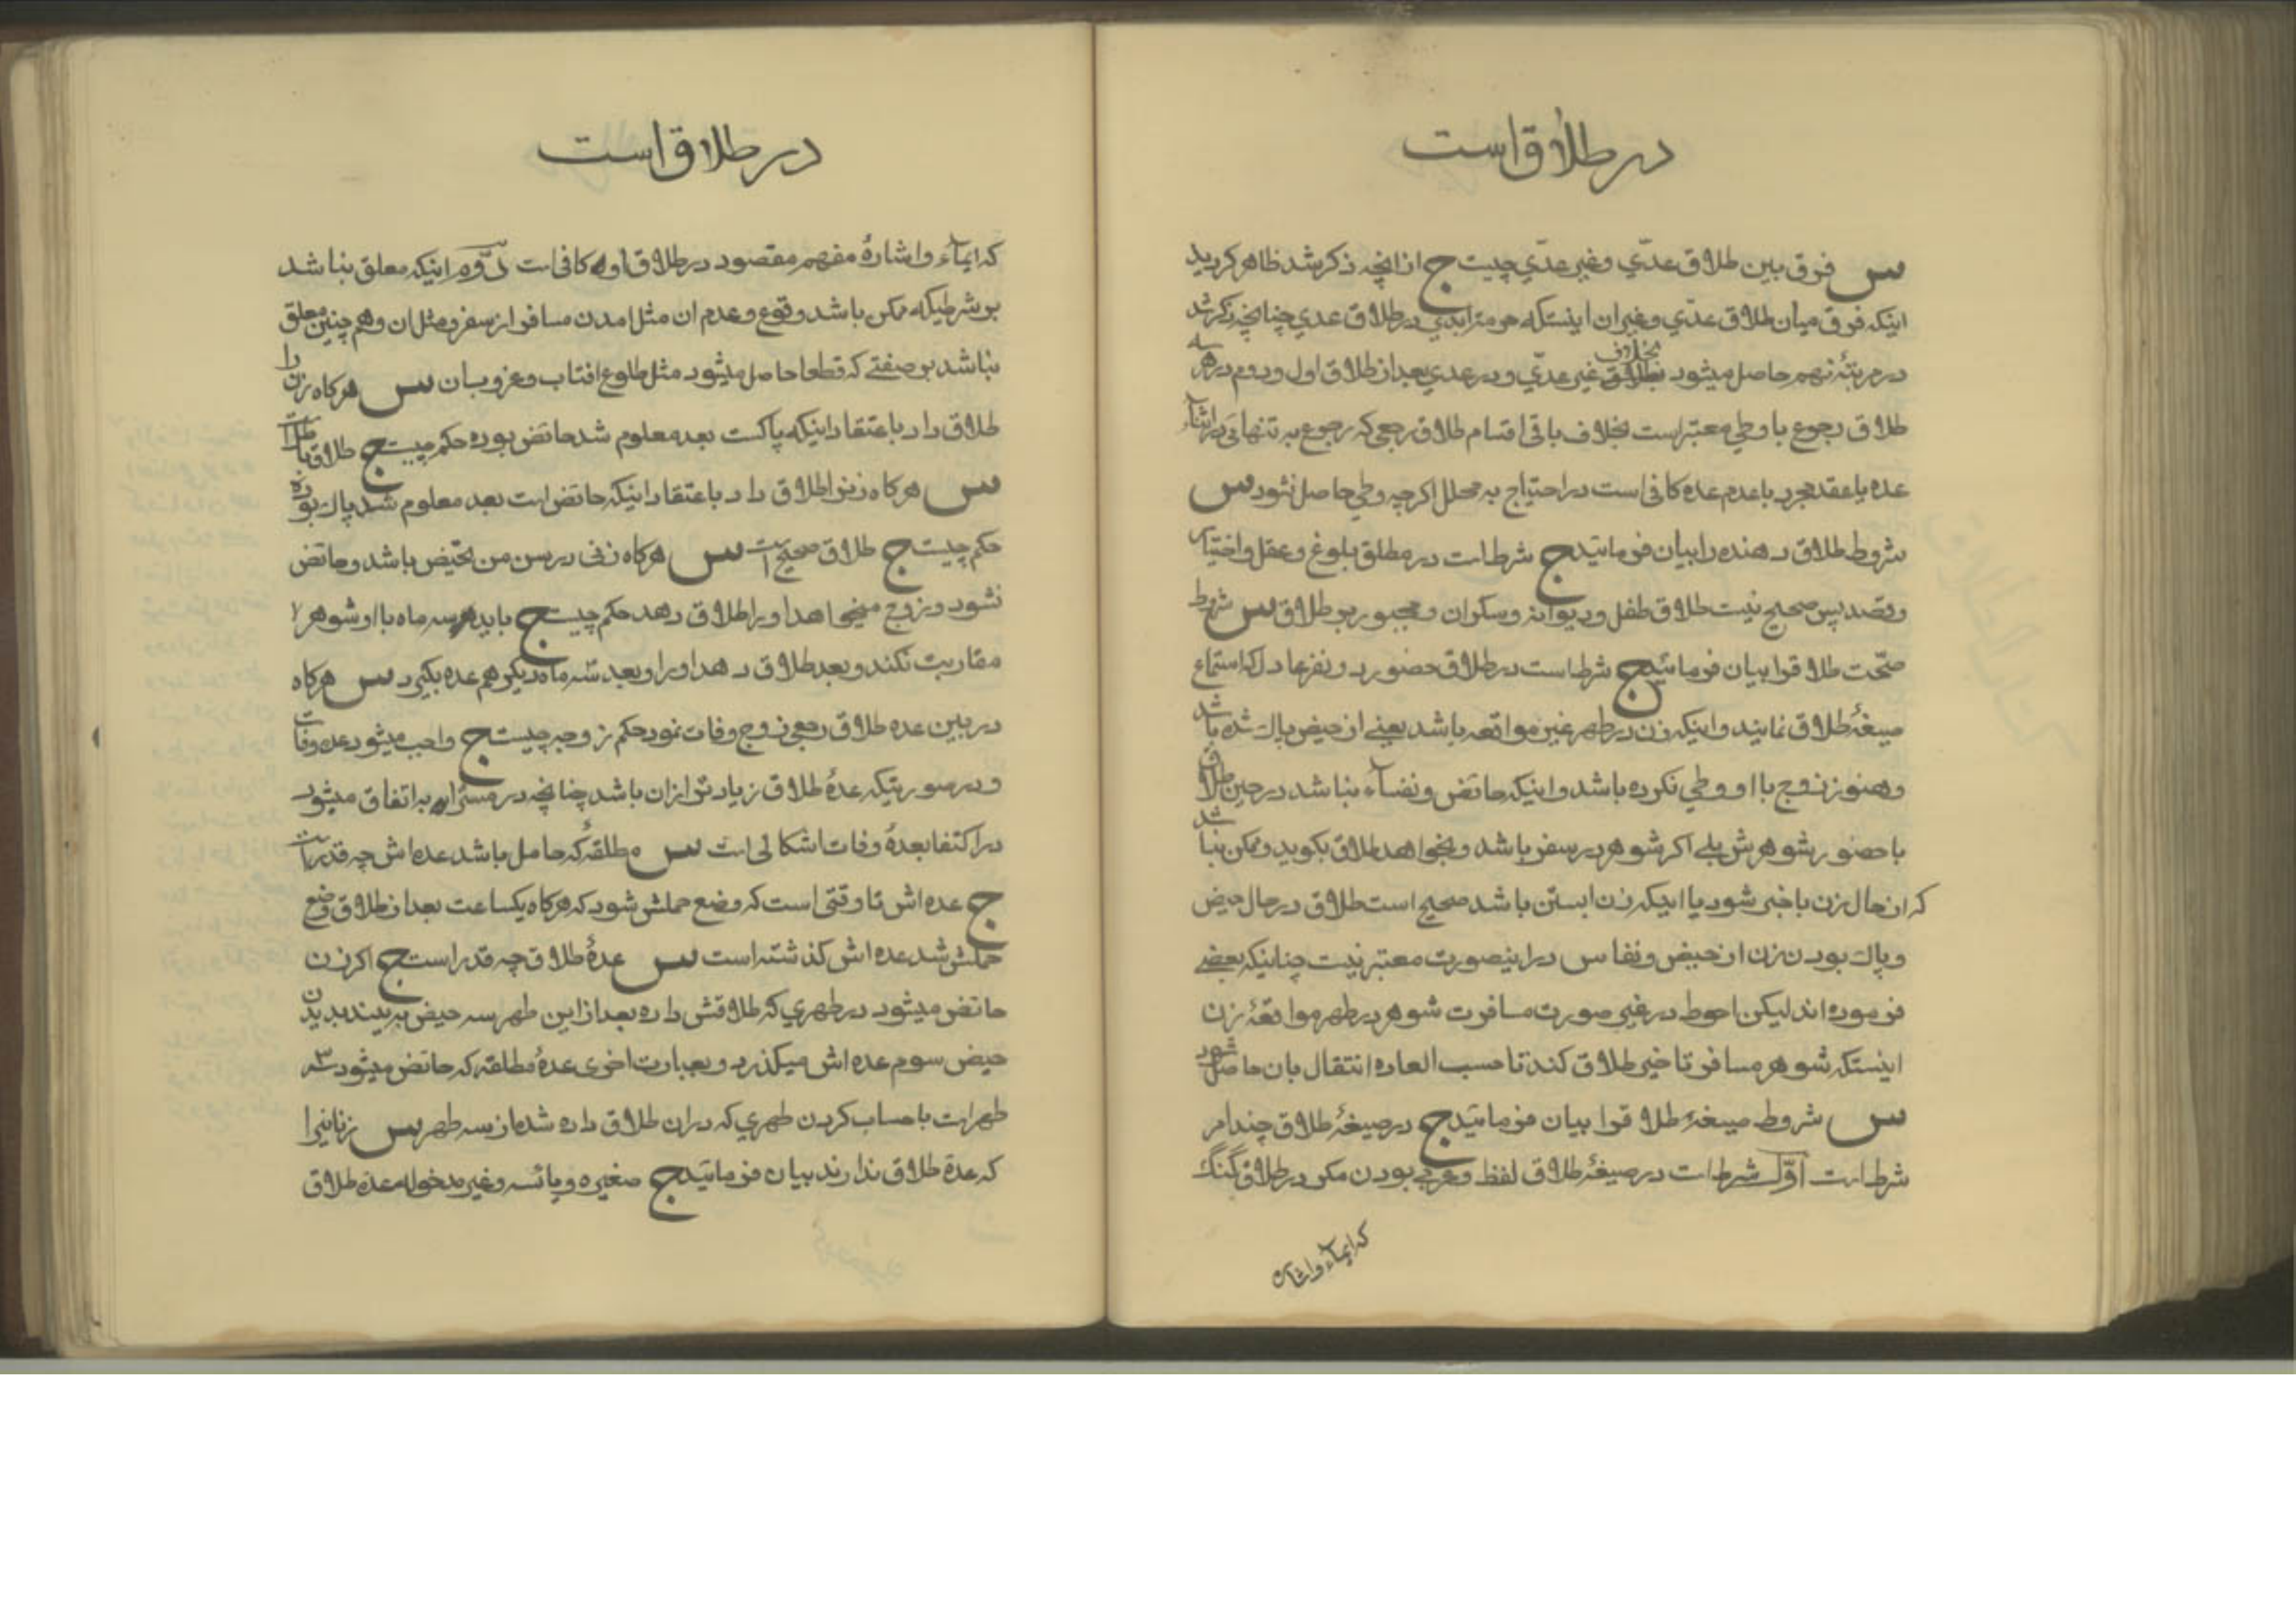 در طلاق است
س فرق بین طلاق عدّي و غیر عدّي چیست ج از انچه ذکر شد ظاهر کردید
اینکه فرق میان طلاق عدّي و غیر ان اینستکه حرمت ابدي در طلاق عدي چنانچه ذکر شد
در مرتبهٔ نهم حاصل میشود بخلاف طلاق غیر عدّي و در عدي بعد از طلاق اول و دوم در هر سه
طلاق رجوع با وطي معتبر است بخلاف باقی اقسام طلاق رجعی که رجوع به تنهائی در اثناء
عده یا عقد مجرد با عدم عده کافی است در احتیاج به محلل اکرچه وطي حاصل نشود س
شروط طلاق دهنده را بیان فرمائید ج شرط است در مطلق بلوغ و عقل و اختیار
و قصد پس صحیح نیست طلاق طفل و دیوانه و سکران و مجبور بر طلاق س شروط
صحّت طلاق را بیان فرمائید ج شرط است در طلاق حضور دو نفر عادل که استماع
صیغهٔ طلاق نمایند و اینکه زن در طهر غیر مواقعه باشد یعنے از حیض پاك شده باشد
و هنوز زوج با او وطي نکرده باشد و اینکه حائض و نفساء نباشد در حین طلاق
با حضور شوهرش بلے اکر شوهر در سفر باشد و بخواهد طلاق بکوید و ممکن نباشد
که از حال زن با خبر شود یا اینکه زن ابستن باشد صحیح است طلاق در حال حیض
و پاك بودن زن از حیض و نفاس در اینصورت معتبر نیست چنانکه بعضے
فرموده اند لیکن احوط در غیر صورت مسافرت شوهر در طهر مواقعهٔ زن
اینستکه شوهر مسافر تاخیر طلاق کند تا حسب العاده انتقال بان حاصل شود
س شروط صیغهٔ طلاق را بیان فرمائید ج در صیغهٔ طلاق چند امر
شرط است اوّل شرط است در صیغهٔ طلاق لفظ و عربي بودن مکر در طلاق گنگ
که ایماء و اشاره
در طلاق است
که ایماء و اشارهٔ مفهم مقصود در طلاق او کافی است دوّم اینکه معلق نباشد
بر شرطیکه ممکن باشد وقوع و عدم ان مثل امدن مسافر از سفر و مثل ان و هم چنین معلق
نباشد بر صفتے که قطعا حاصل میشود مثل طلوع افتاب و غروب ان س هرکاه زن را
طلاق داد با عتقاد اینکه پاکست بعد معلوم شد حائض بوده حکم چیست ج طلاق باطل است
س هرکاه زنرا طلاق داد باعتقاد اینکه حائض است بعد معلوم شد پاك بوده
حکم چیست ج طلاق صحیح است س هرکاه زنی در سن من تحیض باشد و حائض
نشود و زوج میخواهد او را طلاق دهد حکم چیست ج باید سه ماه با او شوهر
مقاربت نکند و بعد طلاق دهد او را و بعد سه ماه دیکر هم عده بکیرد س هرکاه
در بین عده طلاق رجعی زوج وفات نمود حکم زوجه چیست ج واجب میشود عده وفات
و در صورتیکه عدهٔ طلاق زیادتر از ان باشد چنانچه در مسترابه اتفاق میشود
در اکتفا بعدهٔ وفات اشکالی است س مطلقهٔ که حامل باشد عده اش چه قدر است
ج عده اش تا وقتی است که وضع حملش شود که هرکاه یکساعت بعد از طلاق وضع
حملش شد عده اش کذشته است س عدهٔ طلاق چه قدر است ج اکر زن
حائض میشود در طهري که طلاقش داده بعد از این طهر سه حیض به بیند بدیدن
حیض سوم عده اش میکذرد و بعبارت اخری عدهٔ مطلقه که حائض میشود سه
طهر است با حساب کردن طهري که در ان طلاق داده شده از سه طهر س زنانیرا
که عدهٔ طلاق ندارند بیان فرمائید ج صغیره و یائسه و غیر مدخوله عده طلاق